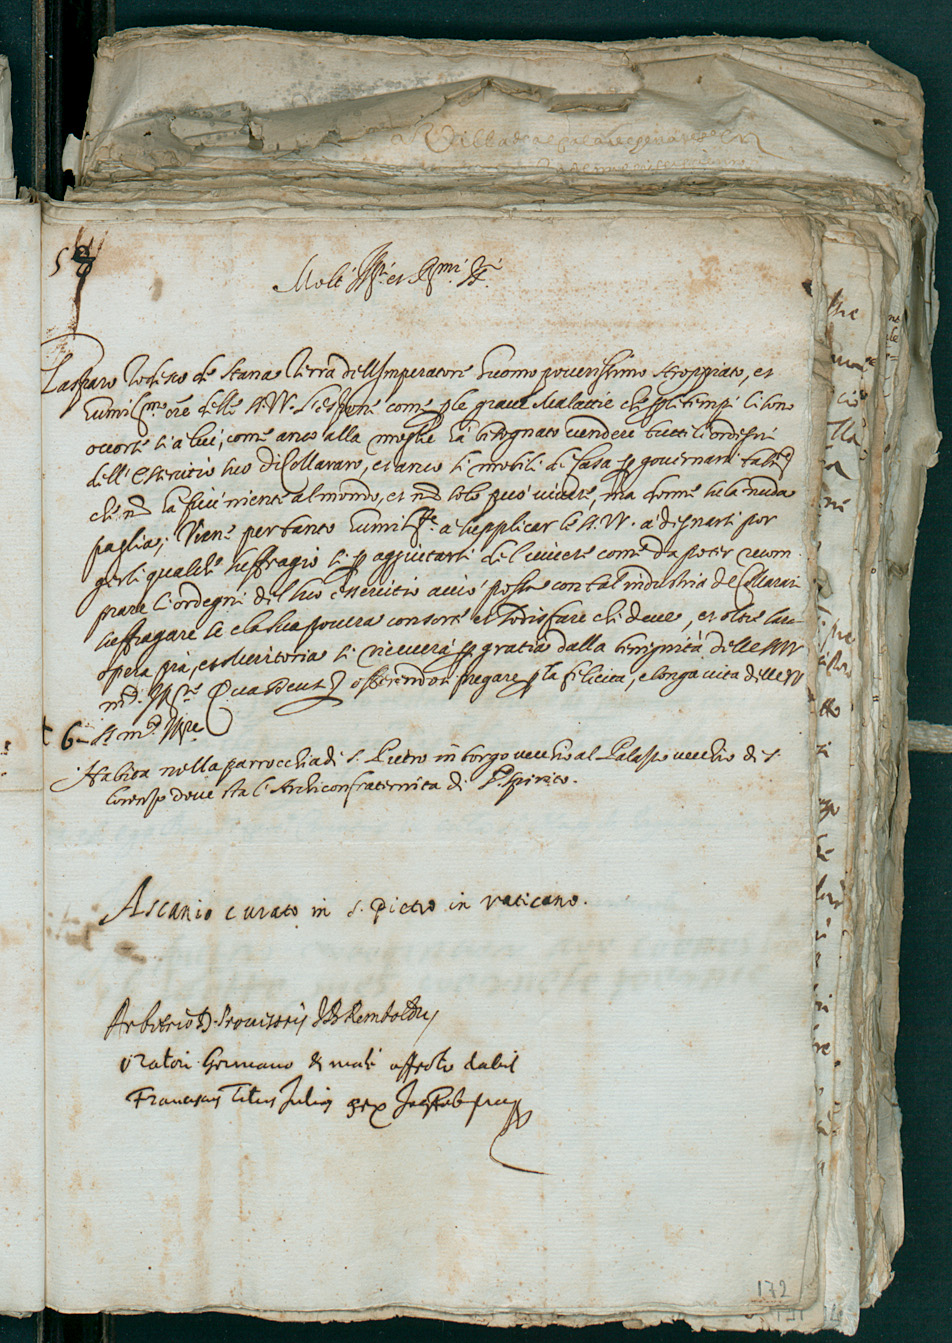 Molt' Ill.ri et R.mi SS.ri
Gasparo Todesco de Stania Terra dell Imperatore huomo poverissimo stroppiato, et
humiliss.mo ore delle S.V. L'espone come p le grave Malattie che p li tempi li sono
occorse si a lui, come anco alla moglie ha bisognato vendere tutti li ordegni
dell' essercitio suo di Collararo, et anco li mobili di casa p governarsi
che nō ha più niente al mondo, et nō solo può vivere, ma dorme su la nuda
paglia; Viene per tanto humilm.te a supplicar le S.V. a degnarsi por
gerli qualche suffragio si p aggiutarsi de l vivere come da poter recom
prare l'ordegni del suo essercitio acciò possa con tal industria de Collarari
suffragare se e la sua povera consorte et sodisfare chi deve, et oltre sarà
opera pia, et meritoria si riceverà p gratia dalla benignità delle SSVV
m.to Ill.re Quas Deus offerendosi pregare p la felicità, e longa vita delle VV
6 SS. m.to Ill.re
Habita nella parrocchia di S. Pietro in borgo vecchio al Palazzo vecchio di S.
Lorenzo dove sta l'Archiconfraternita di S. Spirito.
Ascanio curato in S. Pietro in Vaticano.
Arbitrio D. Provisoris Remboldus
Oratori Germano & male affecto dabit
Franciscus Titus Julius
172